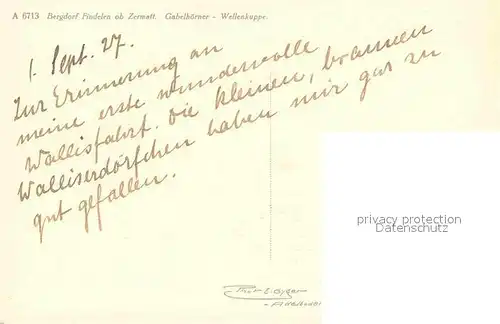 A 6713 Bergdorf Findelen ob Zermatt. Gabelhörner - Wellenkuppe.
1. Sept. 27.
Zur Erinnerung an
meine erste wundervolle
Wallisfahrt. Die kleinen, braunen
Walliserdörfchen haben mir gar zu
gut gefallen.
privacy protection
Oldthing.de
Phot. E. Gyger